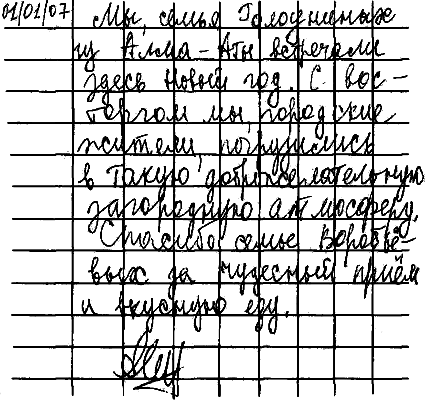 01/01/07 Мы, семья Голодненьких
из Алма-Аты встречали
здесь Новый год. С вос-
торгом мы, городские
жители, погрузились
в такую доброжелательную
загородную атмосферу.
Спасибо семье Воробьё-
вых за чудесный приём
и вкусную еду.